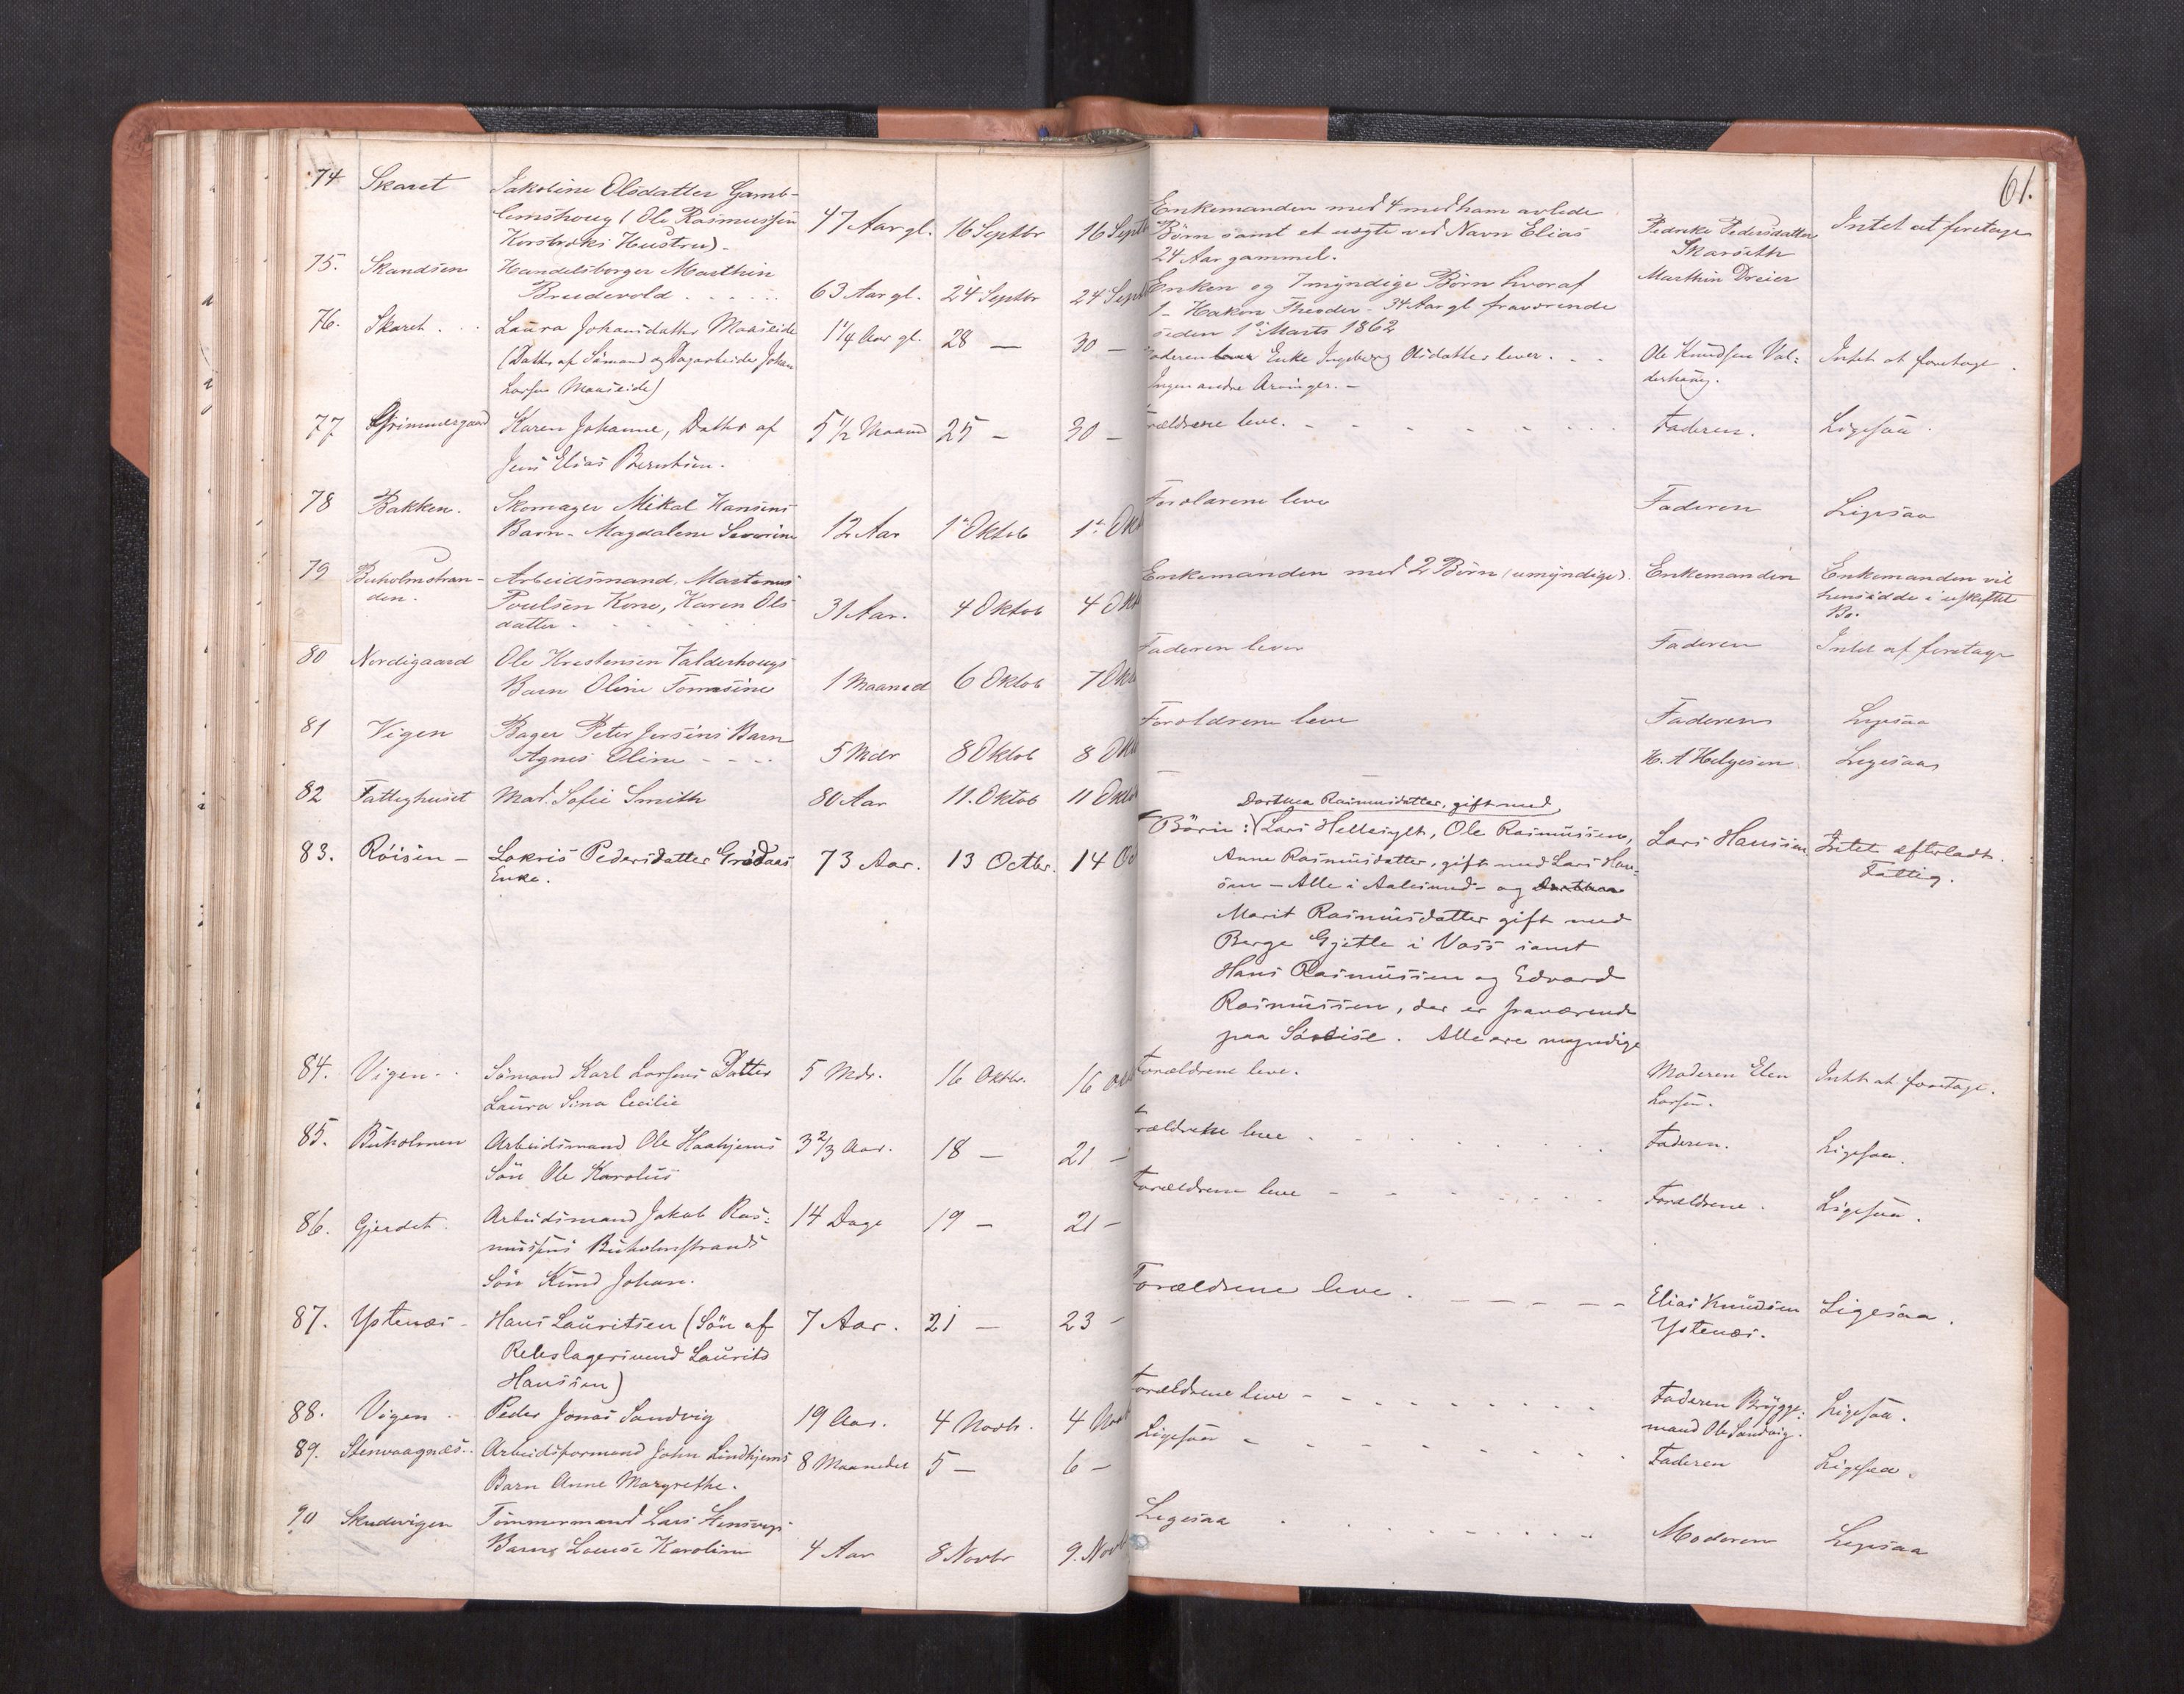 61.
74 Skaret Jakobine Olsdatter Gamb-
lemshoug (Ole Rasmussen 47 Aar gl. 16 Septbr 16 Septb
Hustru).
Enkemanden med 4 med ham avlede
Børn samt et uægte ved Navn Elias
24 Aar gammel.
Pedersdatter
Skarseth
Intet at foretage
75. Skandsen Handelsborger Marthin
Brudevold . . . . . 63 Aar gl. 24 Septbr 24 Septb
Enken og 7 myndige Børn hvoraf
1 - Hakon Theodor - 34 Aar gl fraværende
siden 1ste Marts 1862
Marthin Dreier
76. Skaret . . Laura Johansdatter Maaseide 1 1/4 Aar gl. 28 — 30 —
(Datter af Sömand og Dagarbeider Johan
Larsen Maaseide)
Faderen lever Enke Ingeborg Olsdatter lever . . -
Ingen andre Arvinger. -
Ole Knudsen Val=
derhaug.
Intet at foretage .
77 Grimmergaard Karen Johanne, Datter af 5 1/2 Maaned 25 — 30 —
Jens Elias Berntsen.
Forældrene leve. - - - - - - -
Faderen.
Ligesaa.
78 Bakken. Skomager Mikal Hansens
Barn - Magdalene Severine 12 Aar 1ste Oktob 1ste Okt
Forældrene leve
Faderen
Ligesaa
79 Buholmstran-
den. Arbeidsmand, Martinus
Poulsen Kone, Karen Ols
datter - 31 Aar. 4 Oktob 4 Okt
Enkemanden med 2 Börn (umyndige).
Enkemanden
Enkemanden vil
hensidde i uskiftet
Bo.
80 Nordigaard Ole Kristensen Valderhougs
Barn Oline Tomasine 1 Maaned 6 Oktob 7 Okt
Faderen lever
Faderen
Intet at foretage
81 Vigen Bager Peter Jensens Barn
Agnes Oline - - - . 5 Mdr 8 Oktob 8 Okt
Forældrene leve
Faderen
Ligesaa
82 Fattighuset Mad. Sofie Smith 80 Aar 11. Oktob 11 Oktob
—
H. A Helgesen
Ligesaa
83. Röisen - Lokris Pedersdatter Grödaas
Enke. 73 Aar. 13 Octbr. 14 Oc
Dorthea Rasmusdatter, gift med
Börn: (Lars Hellesylt, Ole Rasmussen,
Anne Rasmusdatter, gift med Lars Han=
sen - Alle i Aalesund - og Dorthea
Marit Rasmusdatter gift med
Berge Gjetle i Voss samt
Hans Rasmussen og Edvard
Rasmussen, der er fraværende
paa Söreise. Alle ere myndige
Lars Hansen
Intet efterladt.
Fattig.
84. Vigen - . Sömand Karl Larsens Datter 5 Mdr. 16 Oktbr. 16 Okt
Laura Sina Cecilie
Forældrene leve.
Moderen Elen
Larsen.
Intet at foretage.
85. Buholmen Arbeidsmand Ole Haahjems 3 2/3 Aar. 18 — 21 —
Sön Ole Karolus
Forældrene leve . - - - -
Faderen.
Ligesaa.
86. Gjerdet. Arbeidsmand Jakob Ras= 14 Dage 19 — 21 —
mussens Buholmstrands
Sön Knud Johan.
Forældrene leve - - - -
Forældrene.
Ligesaa.
87. Ystenæs - Hans Lauritsen (Sön af 7 Aar. 21 — 23 —
Rebslagersvend Laurits
Hanssen)
Forældrene leve . - - - -
Elias Knudsen
Ystenæs.
Ligesaa.
88. Vigen . Peder Jonas Sandvig 19 Aar. 4 Novb. 4 Nov
Forældrene leve - - - -
Faderen Brygge=
mand Ole Sandvig.
Ligesaa.
89. Stenvaagnæs . . Arbeidsformand John Lindhjems 8 Maaneder 5 — 6 —
Barn Anne Margrethe.
Ligesaa - - - -
Faderen
Ligesaa.
90 Skudevigen Tömmermand Lars
Barn, Louise Karoline 4 Aar 8 Novbr 9. Novb
Ligesaa . . . .
Moderen
Ligesaa